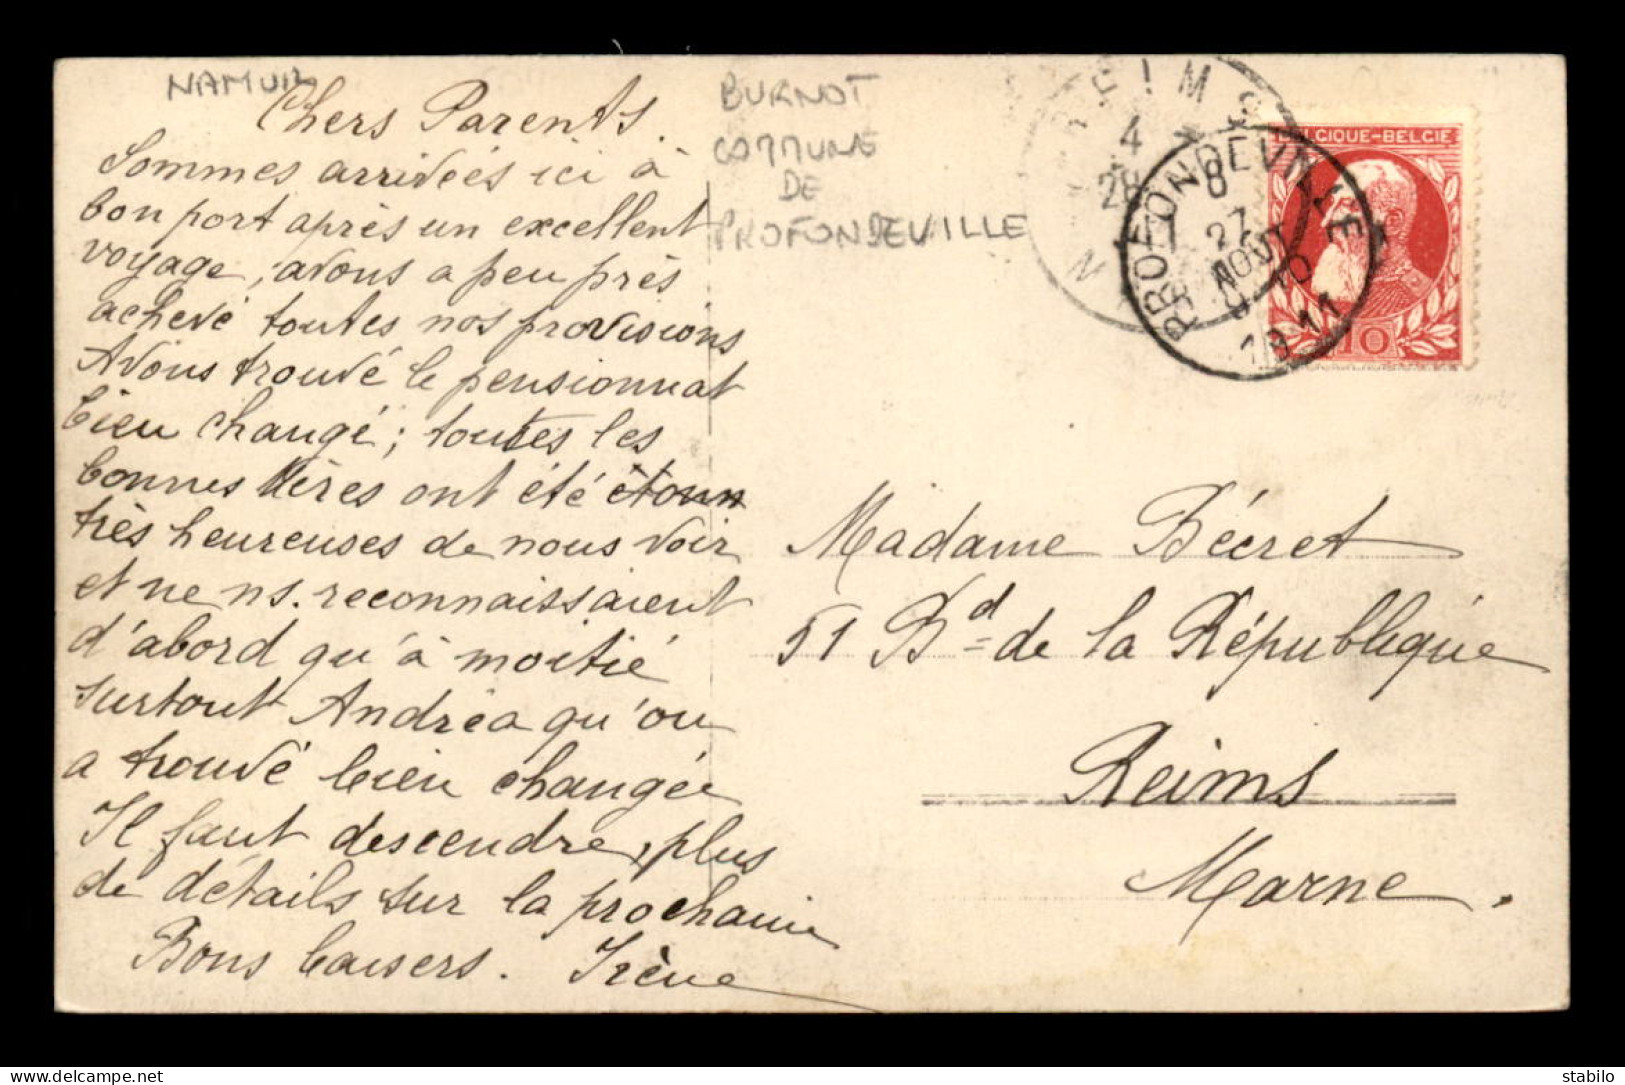 NAMUR
Chers Parents.
Sommes arrivées ici à
bon port après un excellent
voyage, avons a peu près
achevé toutes nos provisions
Avons trouvé le pensionnat
bien changé; toutes les
bonnes Mères ont été étonn
très heureuses de nous voir
et ne ns. reconnaissaient
d'abord qu'à moitié
surtout Andréa qu'on
a trouvé bien changée
Il faut descendre, plus
de détails sur la prochaine
Bons baisers. Irène
BURNOT
COMMUNE
DE
PROFONDEVILLE
REIMS
4
28
PROFONDEVILLE
8
27
AOUT
9-10
1911
BELGIQUE-BELGIË
10
Madame Bécret
51 Bd de la République
Reims
Marne.
stabilo